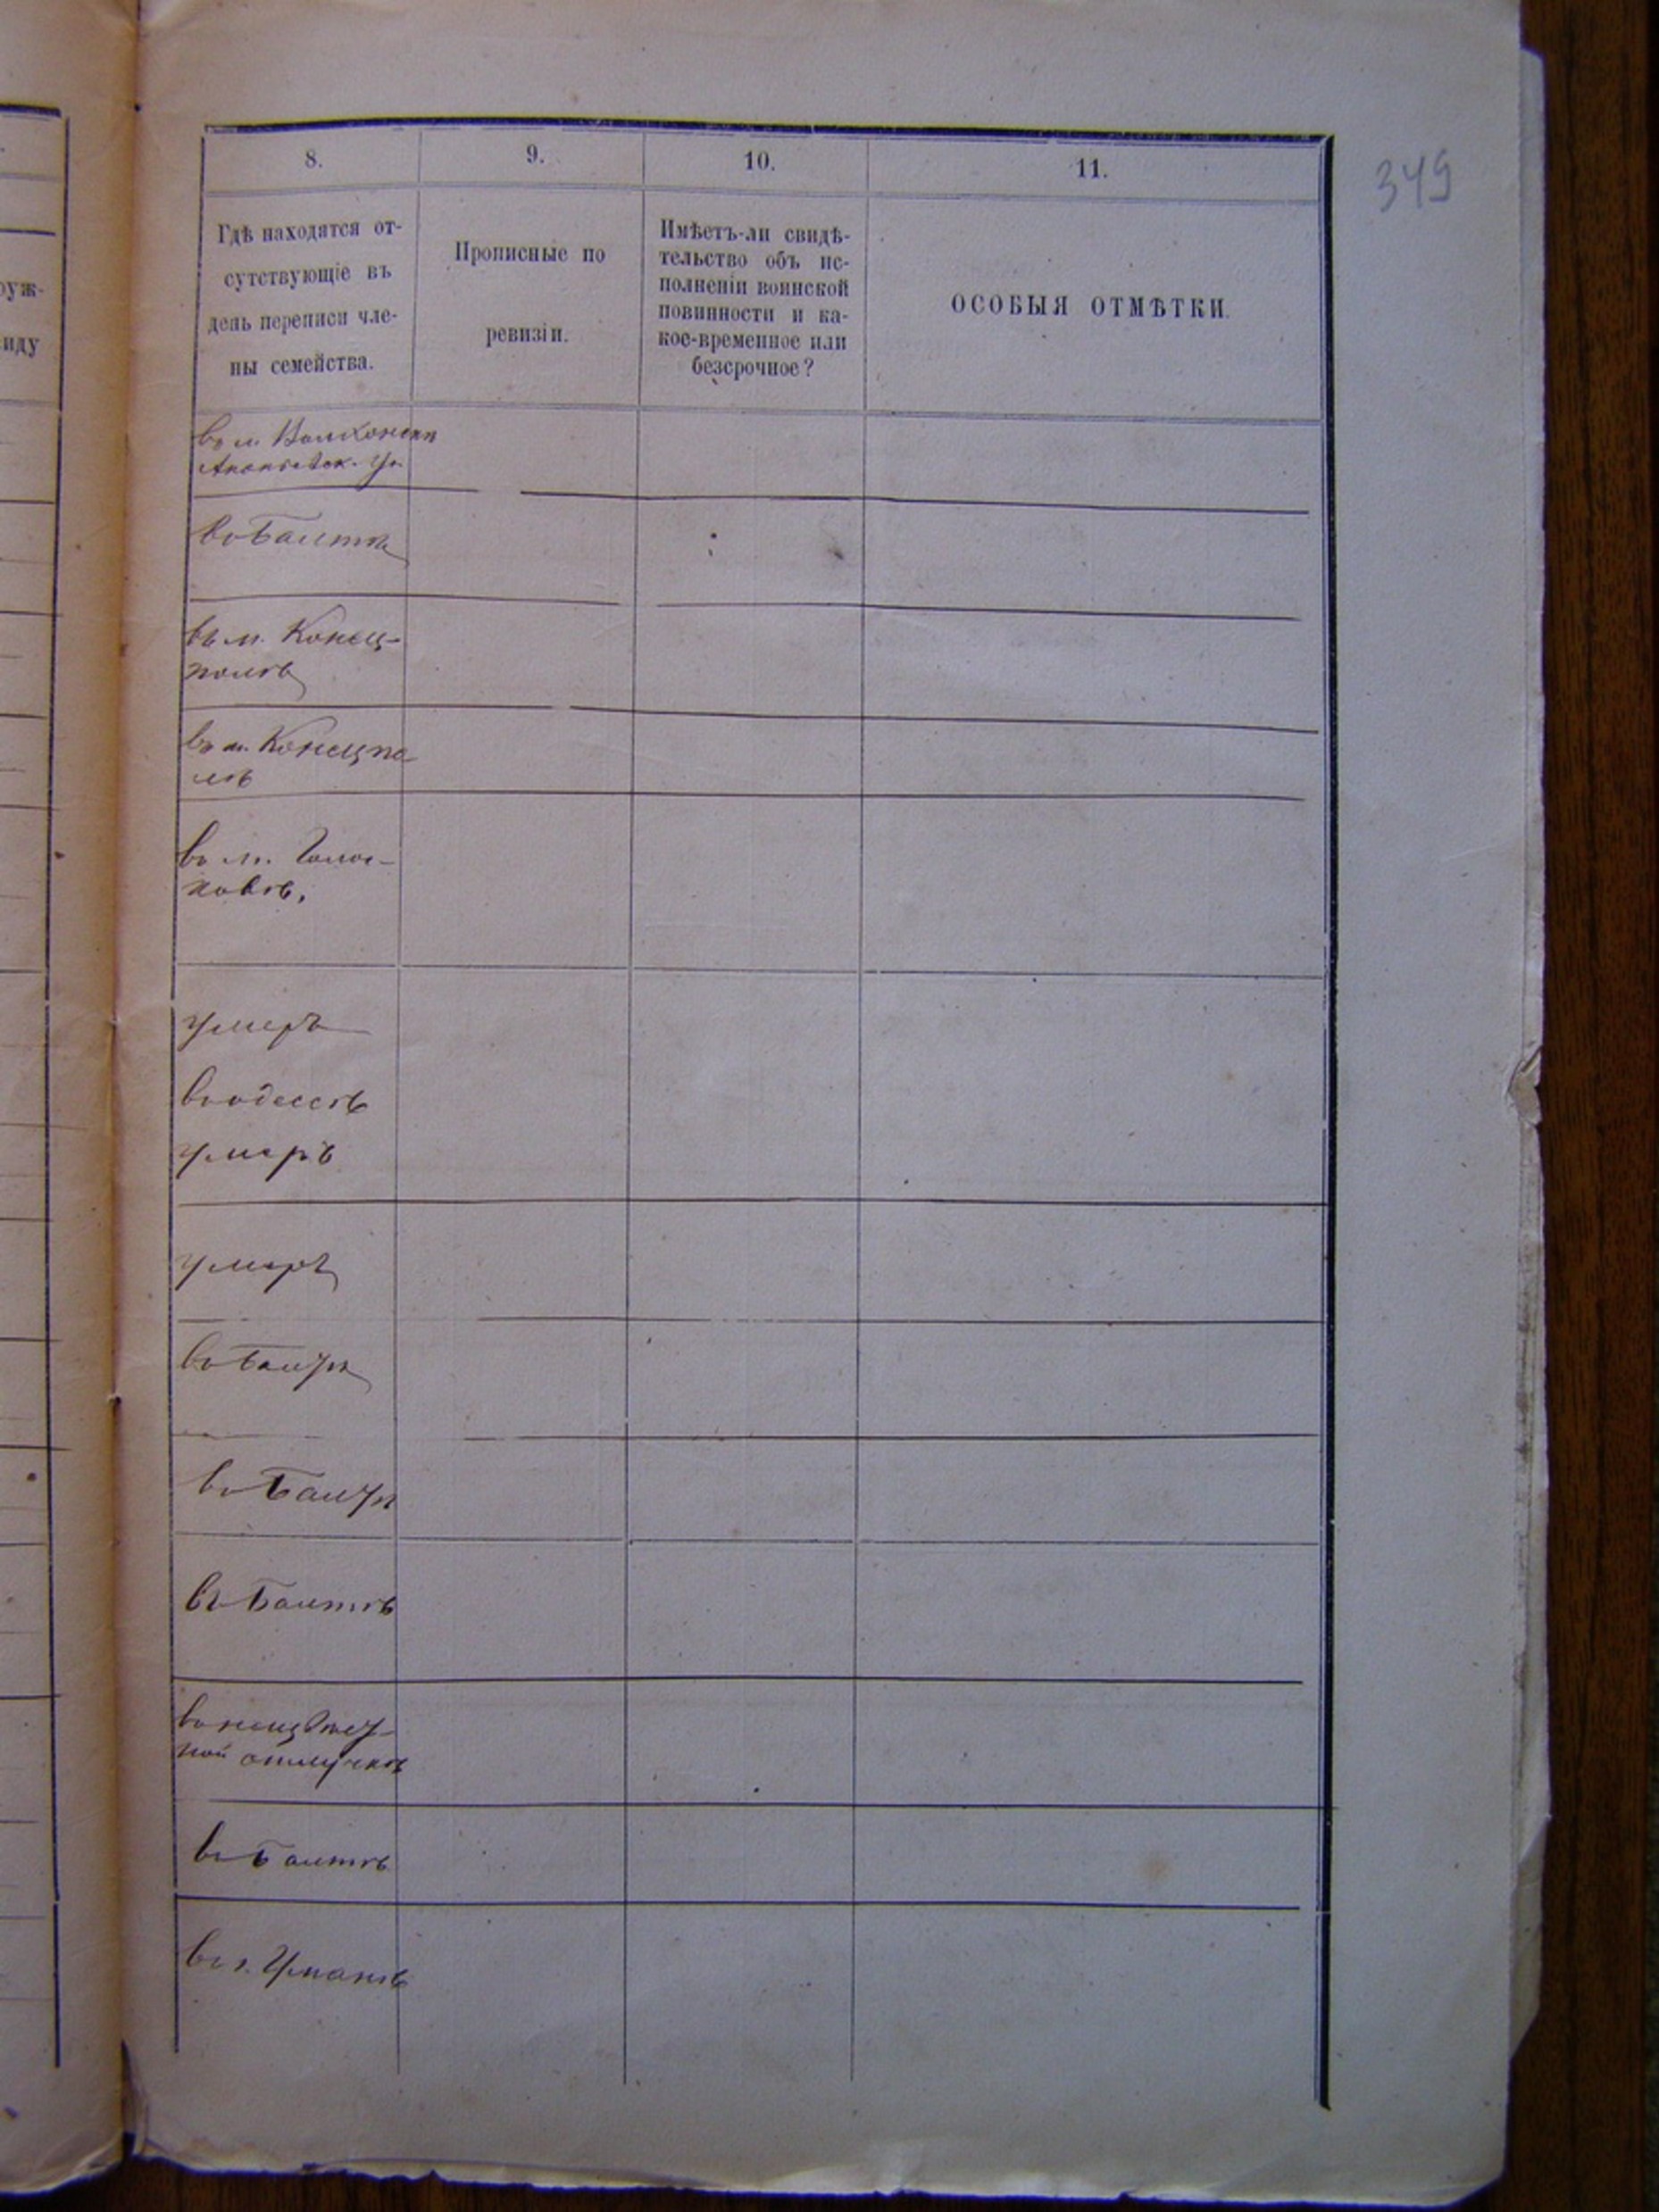 руж-
виду
349
8.
9.
10.
11.
Гдѣ находятся от-
сутствующіе въ
день переписи чле-
ны семейства.
Прописные по
ревизіи.
Имѣетъ-ли свидѣ-
тельство объ ис-
полненіи воинской
повинности и ка-
кое-временное или
безсрочное?
ОСОБЫЯ ОТМѢТКИ.
въ м.
въ Балтѣ
въ м. Конец-
полѣ
въ м. Конецпо-
лѣ
въ м. Голос-
ковѣ,
умеръ
въ одессѣ
умеръ
умеръ
въ Балтѣ
въ Балтѣ
въ Балтѣ
отлучкѣ
въ Балтѣ
въ г. Уманѣ